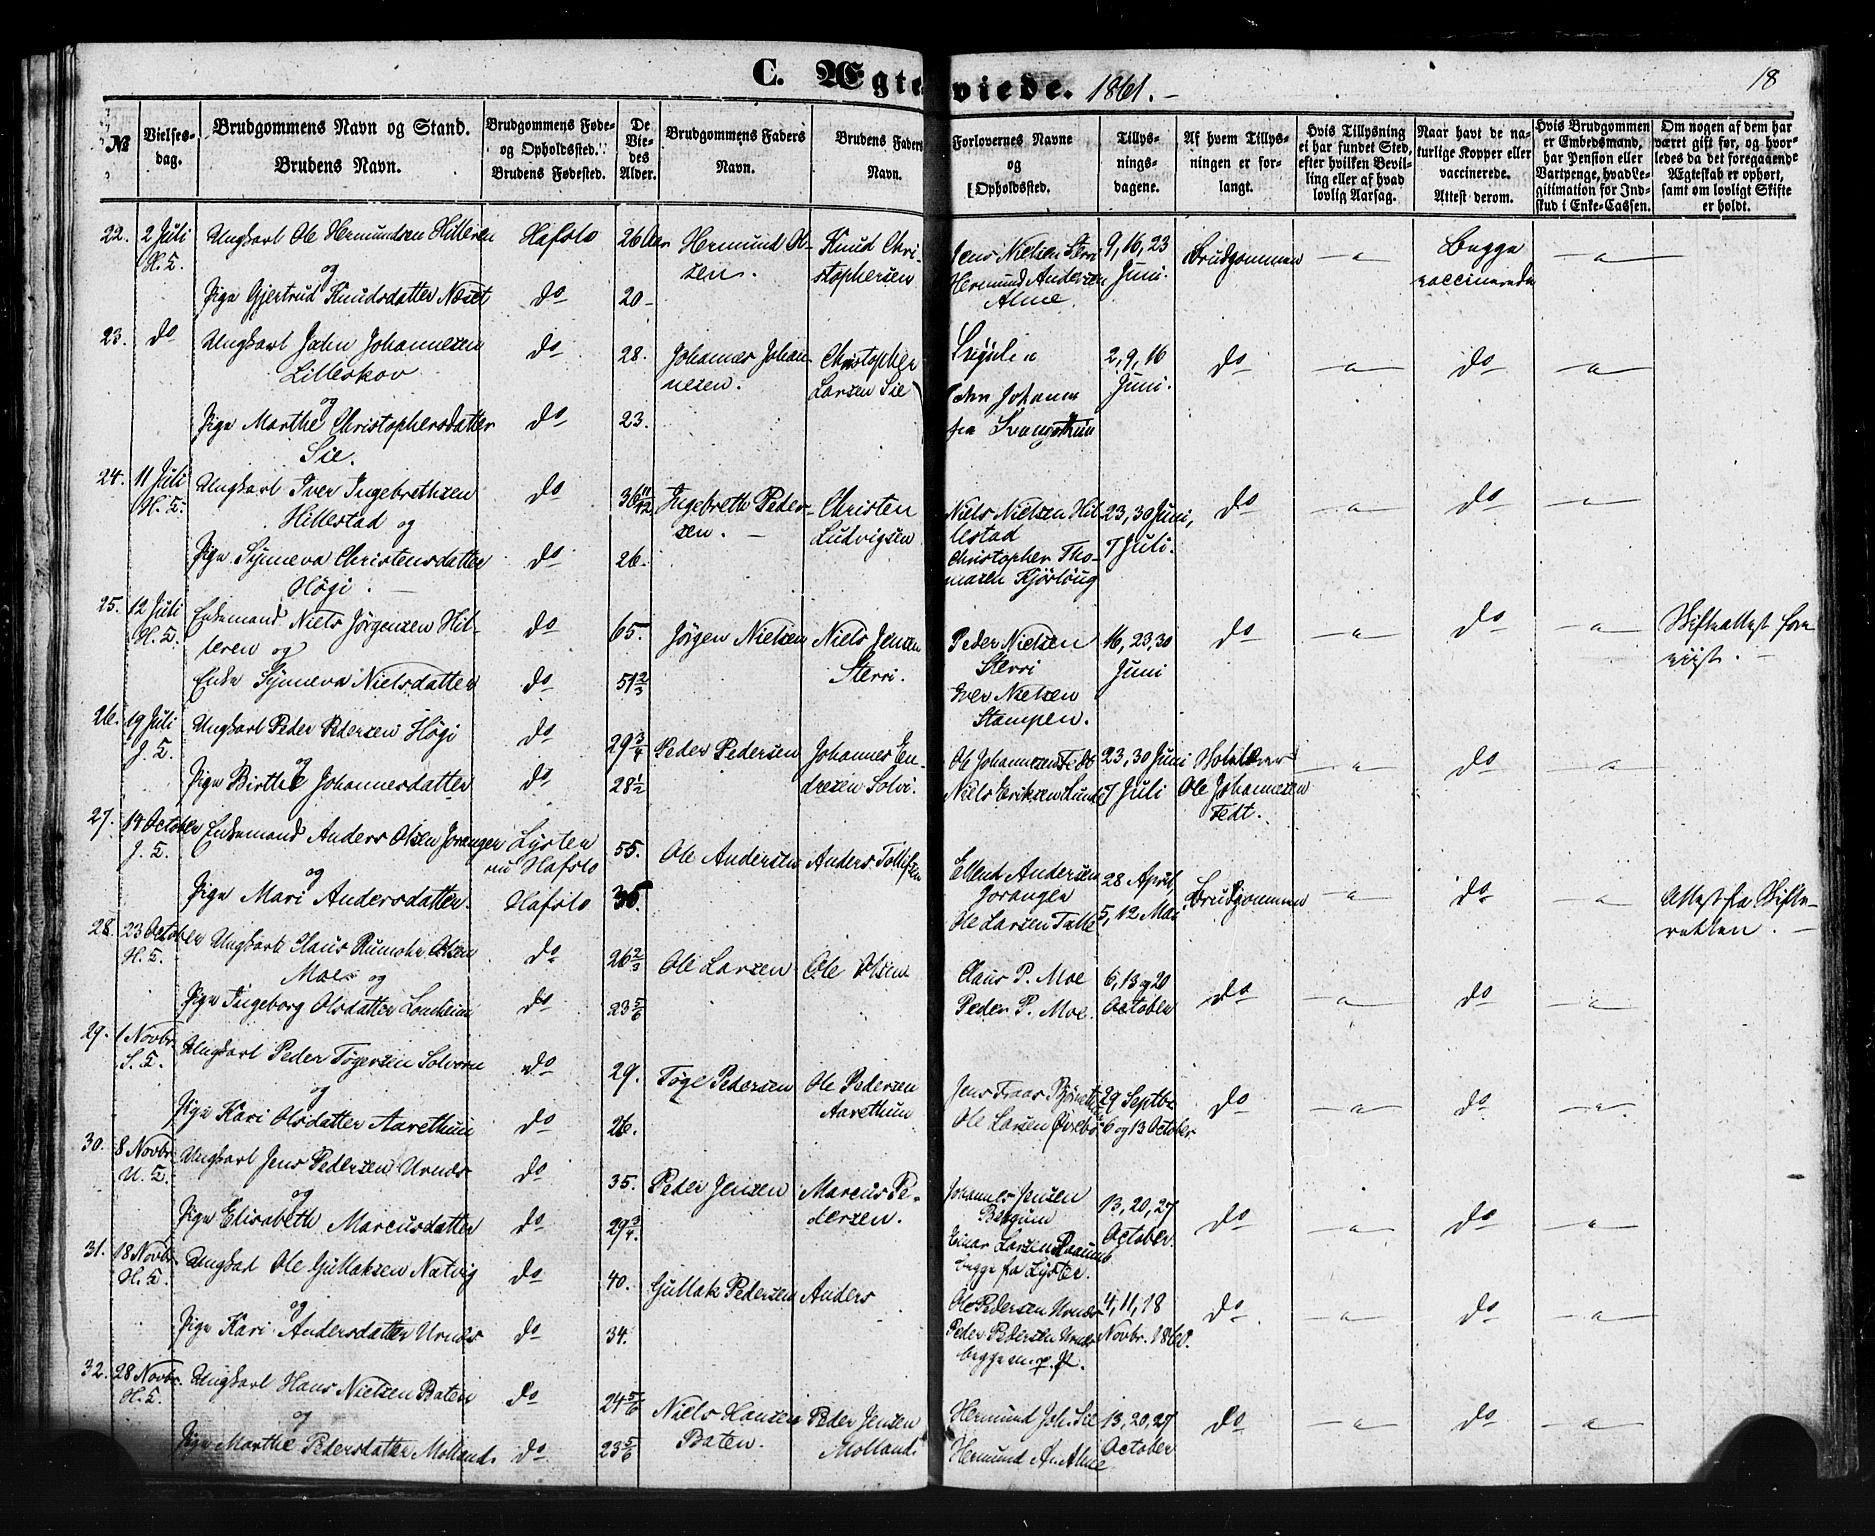 C. Ægteviede. 1861.-
18
No
Vielses-
dag.
Brudgommens Navn og Stand.
Brudens Navn.
Brudgommens Føde-
og Opholdssted.
Brudens Fødested.
De
Vie-
des
Alder.
Brudgommens Faders
Navn.
Brudens Faders
Navn.
Forlovernes Navne
og
Opholdssted.
Tillys-
nings-
dagene.
Af hvem Tillys-
ningen er for-
langt.
Hvis Tillysning
ei har fundet Sted,
efter hvilken Bevil-
ling eller af hvad
lovlig Aarsag.
Naar havt de na-
turlige Kopper eller
vaccinerede.
Attest derom.
Hvis Brudgommen
er Embedsmand,
har Pension eller
Vartpenge, hvad Le-
gitimation for Ind-
skud i Enke-Cassen.
Om nogen af dem har
været gift før, og hvor-
ledes da det foregaaende
Ægteskab er ophørt,
samt om lovligt Skifte
er holdt.
22. 2 Juli Ungkarl Ole Hermundsen Hilleren Hafslo 26 Aar Hermund Ol- Knud Chri- Jens Nielsen Sterri 9, 16, 23 Brudgommen - a - Begge - a -
H. K. og sen. stophersen Hermund Andersen Juni. vaccinerede
Pige Gjertrud Knudsdatter Næset do 20 - Alme.
23. do Ungkarl John Johannesen do 28. Johannes Johan- Christopher 2, 9, 16 do - a - do - a -
Lilleskov nesen. Larsen Sie Juni.
og
Pige Marthe Christophersdatter do 23. fra
Sie.
24. 11 Juli Ungkarl Iver Ingebrethsen do 36 11/12 Ingebreth Peder- Christen Niels Nielsen Hil- 23, 30 Juni, do - a - do - a -
H. K. Hillestad og sen. - Ludvigsen lestad 7 Juli.
Pige Synneva Christensdatter do 26. Christopher Tho-
Høgi. - masen Kjørlaug
25. 12 Juli Enkemand Niels Jørgensen Hil- do 65. Jørgen Nielsen Niels Jensen Peder Nielsen 16, 23, 30 do - a - do - a - Skifteattest fore-
H. K. leren og Sterri. Sterri Juni viist. -
Enke Synneva Nielsdatter do 51 2/3 Iver Nielsen
Stampen.
26. 19 Juli Ungkarl Peder Pedersen Høgi do 29 3/4 Peder Pedersen Johannes En- Ole Johannesen Fedt 23, 30 Juni Skolelærer - a - do - a -
J. K. og dresen Solvi. Niels Eriksen Lunde 7 Juli Ole Johannesen
Pige Birthe Johannesdatter do 28 1/2 Fedt.
27. 14 October Enkemand Anders Olsen Joranger Lyster 55. Ole Andersen Anders Tollefsen Ellend Andersen 28 April, Brudgommen - a - do - a - Attest fra Skifte-
J. K. og nu Hafslo Joranger 5, 12 Mai retten. -
Pige Mari Andersdatter. Hafslo 36. Ole Larsen Talle
28. 23 October Ungkarl Claus Rumohr Olsen do 26 2/3 Ole Larsen Ole Olsen Claus P. Moe 6, 13 og 20 do - a - do - a -
H. K. Moe og Peder P. Moe. October
Pige Ingeborg Olsdatter Lomheim do 23 5/6
29. 1 Novbr. Ungkarl Peder Tøgersen Solvorn do 29. Tøge Pedersen Ole Pedersen Jens 29 Septbr. do - a - do - a -
S. K. og Aarethun Ole Larsen Øvrebø 6 og 13 October
Pige Kari Olsdatter Aarethun do 26.
30. 8 Novbr. Ungkarl Jens Pedersen Urnæs do 35. Peder Jensen Marcus Pe- Johannes Jensen 13, 20, 27 do - a - do - a -
U. K. og dersen. Bergum October.
Pige Elisabeth Marcusdatter do 29 3/4. Einar Larsen
begge fra Lyster.
31. 18 Novbr. Ungkarl Ole Gullaksen Natvig do 40. Gullak Pedersen Anders Ole Pedersen Urnæs 4, 11, 18 do - a - do - a -
H. K. og Peder Pedersen Urnæs Novbr. 1860.
Pige Kari Andersdatter Urnæs do 34. begge m. p. P.
32. 28 Novbr. Ungkarl Hans Nielsen Baten do 24 5/6 Niels Hansen Peder Jensen Hermund Joh. Sie 13, 20, 27 do - a - do - a -
H. K. og Baten. Molland. Hermund A. Alme October
Pige Marthe Pedersdatter Molland. do 23 5/6